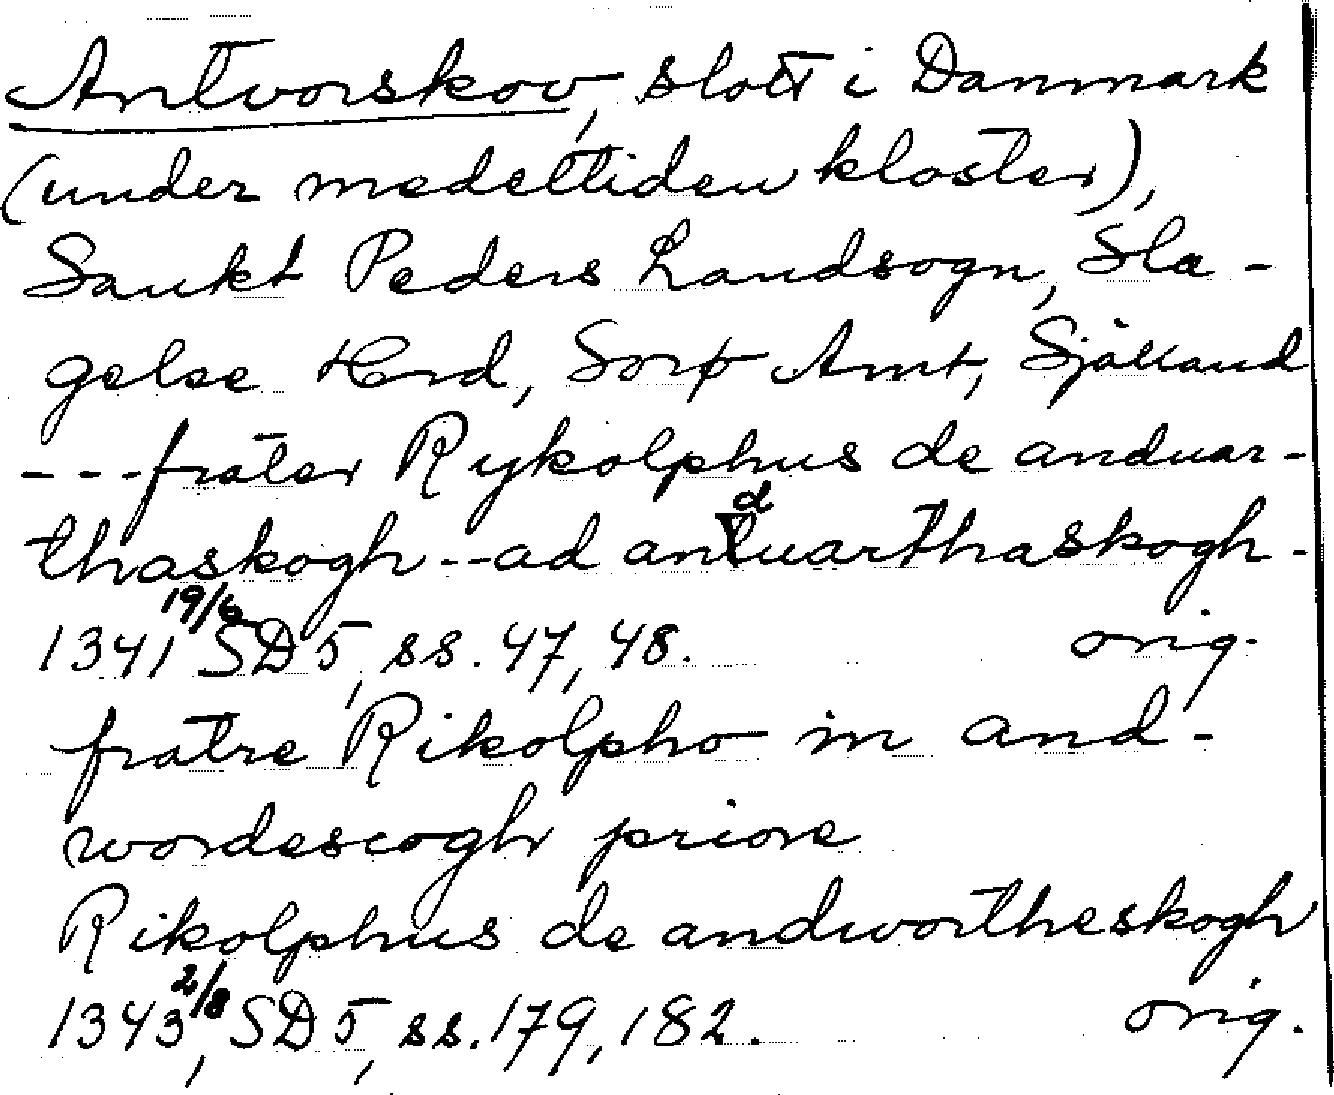 Antvorskov, slott i Danmark
(under medeltiden kloster),
Sankt Peders Landsogn, Sla-
gelse Hrd, Sorø Amt, Själland
---frater Rykolphus de anduar-
thaskogh--ad anduarthaskogh-
1341 19/6 SD 5, ss. 47, 48. orig.
fratre Rikolpho in and-
wordescogh priore
Rikolphus de andwortheskogh
1343 2/8, SD 5, ss. 179, 182. orig.